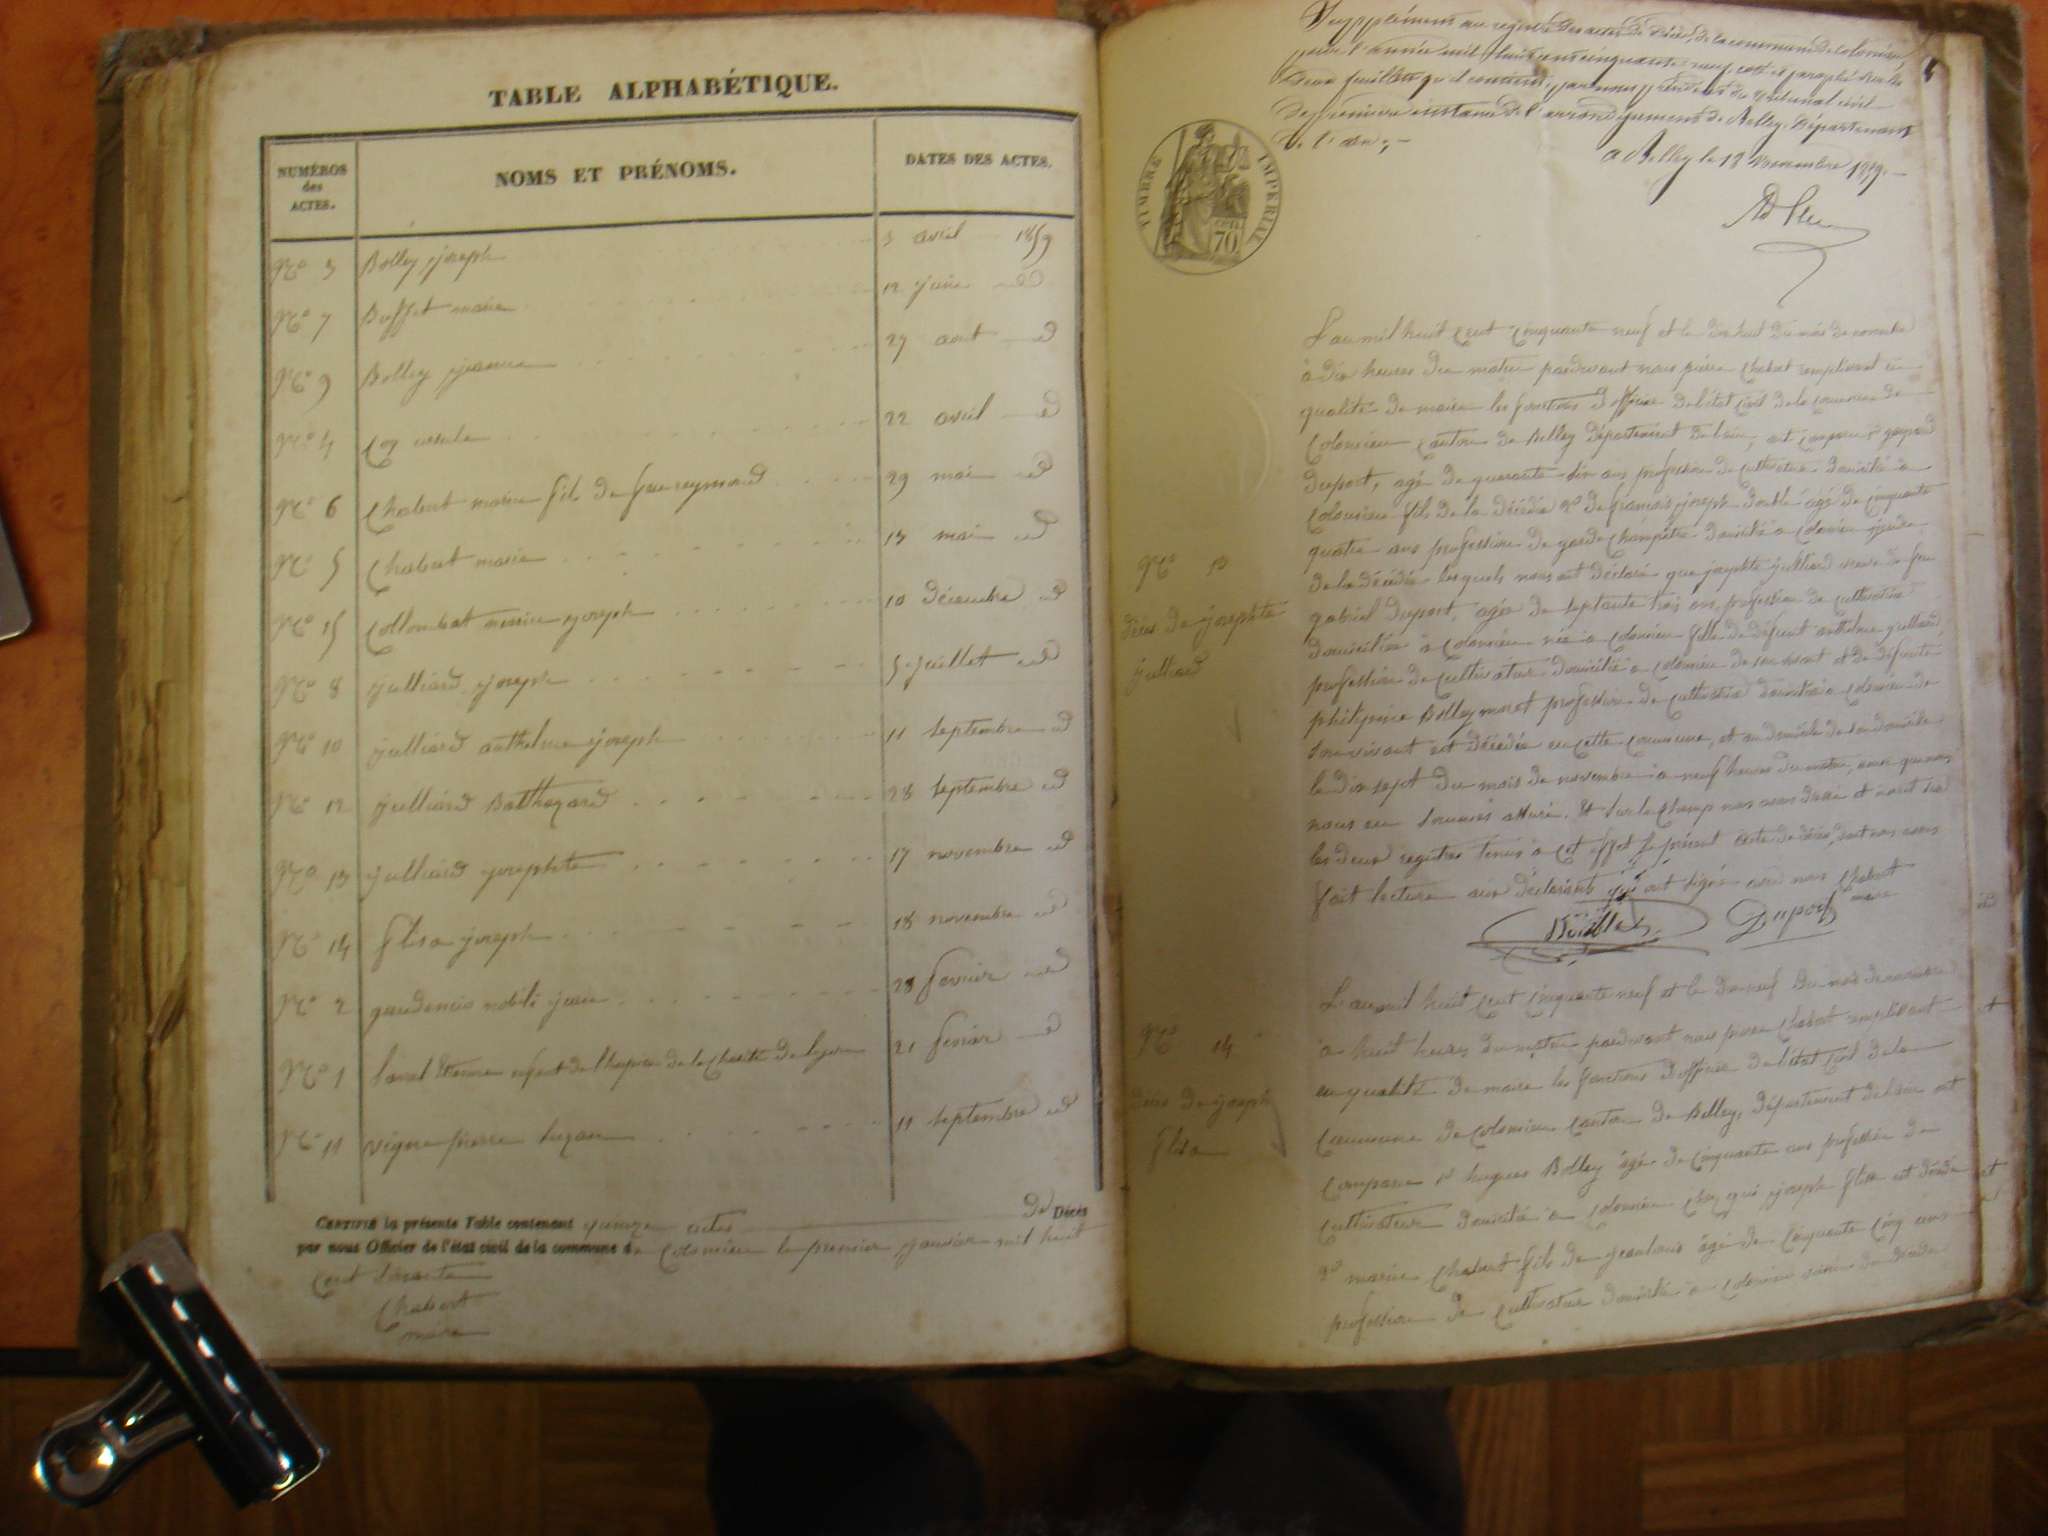 TABLE ALPHABÉTIQUE.
NUMÉROS des ACTES. NOMS ET PRÉNOMS. DATES DES ACTES.
No 3 Bolley joseph 3 avril 1859
No 7 Buffet marie 12 juin id
No 9 Bolley jeanne 27 aout id
No 4 Coy ursule 22 avril id
No 6 Chabert marie fils de feu reymond 29 mai id
No 5 Chabert marie 13 mai id
No 15 Collombat joseph 10 décembre id
No 8 julliard joseph 5 juillet id
No 10 julliard anthelme joseph 11 septembre id
No 12 julliard Balthazard 28 septembre id
No 13 julliard josephte 17 novembre id
No 14 flisa joseph 18 novembre id
No 2 gaudencio nobili jean 28 fevrier id
No 1 Etienne de la Charité de lyon 21 fevrier id
No 11 vigne pierre 11 septembre id
CERTIFIÉ la présente Table contenant quinze actes de Décès
par nous Officier de l'état civil de la commune de Colomieu le premier janvier mil huit
Cent soixante
Chabert
maire
Supplément au registre des actes de décès de la commune de Colomieu
pour l'année mil huit cent cinquante neuf, coté et paraphé sur les
deux feuillets qu'il contient, par nous président du tribunal civil
de première instance de l'arrondissement de Belley, Département
de l'ain ;-
a Belley le 18 novembre 1859.
TIMBRE IMPERIAL
70
L'an mil huit cent cinquante neuf et le dix huit du mois de novembre
à dix heures du matin pardevant nous pierre Chabert remplissant en
qualité de maire les fonctions d'officier de l'état civil de la commune de
Colomieu canton de Belley département de l'ain, ont comparu gaspard
dupont, agé de quarante six ans profession de cultivateur domicilié a
Colomieu fils de la décédée 2o de françois joseph double agé de cinquante
quatre ans profession de garde champêtre domicilié a Colomieu
de la décédée lesquels nous ont déclaré que josephte julliard veuve de feu
gabriel dupont, agée de septante trois ans, profession de cultivatrice
domiciliée a Colomieu née a Colomieu fille de défunt anthelme julliard
profession de cultivateur domicilié a Colomieu de son vivant et de défunte
philipine Bolley moret profession de cultivatrice domiciliée a Colomieu de
son vivant est décédée en cette commune, et au domicile de
le dix sept du mois de novembre a neuf heures du matin, ainsi que nous
nous en sommes assuré. Et sur le champ nous avons dressé et inscrit sur
les deux registres tenus a cet effet le présent acte de décès, dont nous avons
fait lecture aux déclarants qui ont signé avec nous Chabert
maire
Dupont
No 13
décès de josephte
julliard
L'an mil huit cent cinquante neuf et le dix neuf du mois de novembre
a huit heures du matin pardevant nous pierre Chabert remplissant
en qualité de maire les fonctions d'officier de l'état civil de la
Commune de Colomieu canton de Belley, département de l'ain ont
comparu hugues Bolley agé de cinquante ans profession de
cultivateur domicilié a Colomieu chez qui joseph flisa est décédé
2o marie Chabert fils de jean louis agé de cinquante cinq ans
profession de cultivateur domicilié a Colomieu
No 14
décès de joseph
flisa